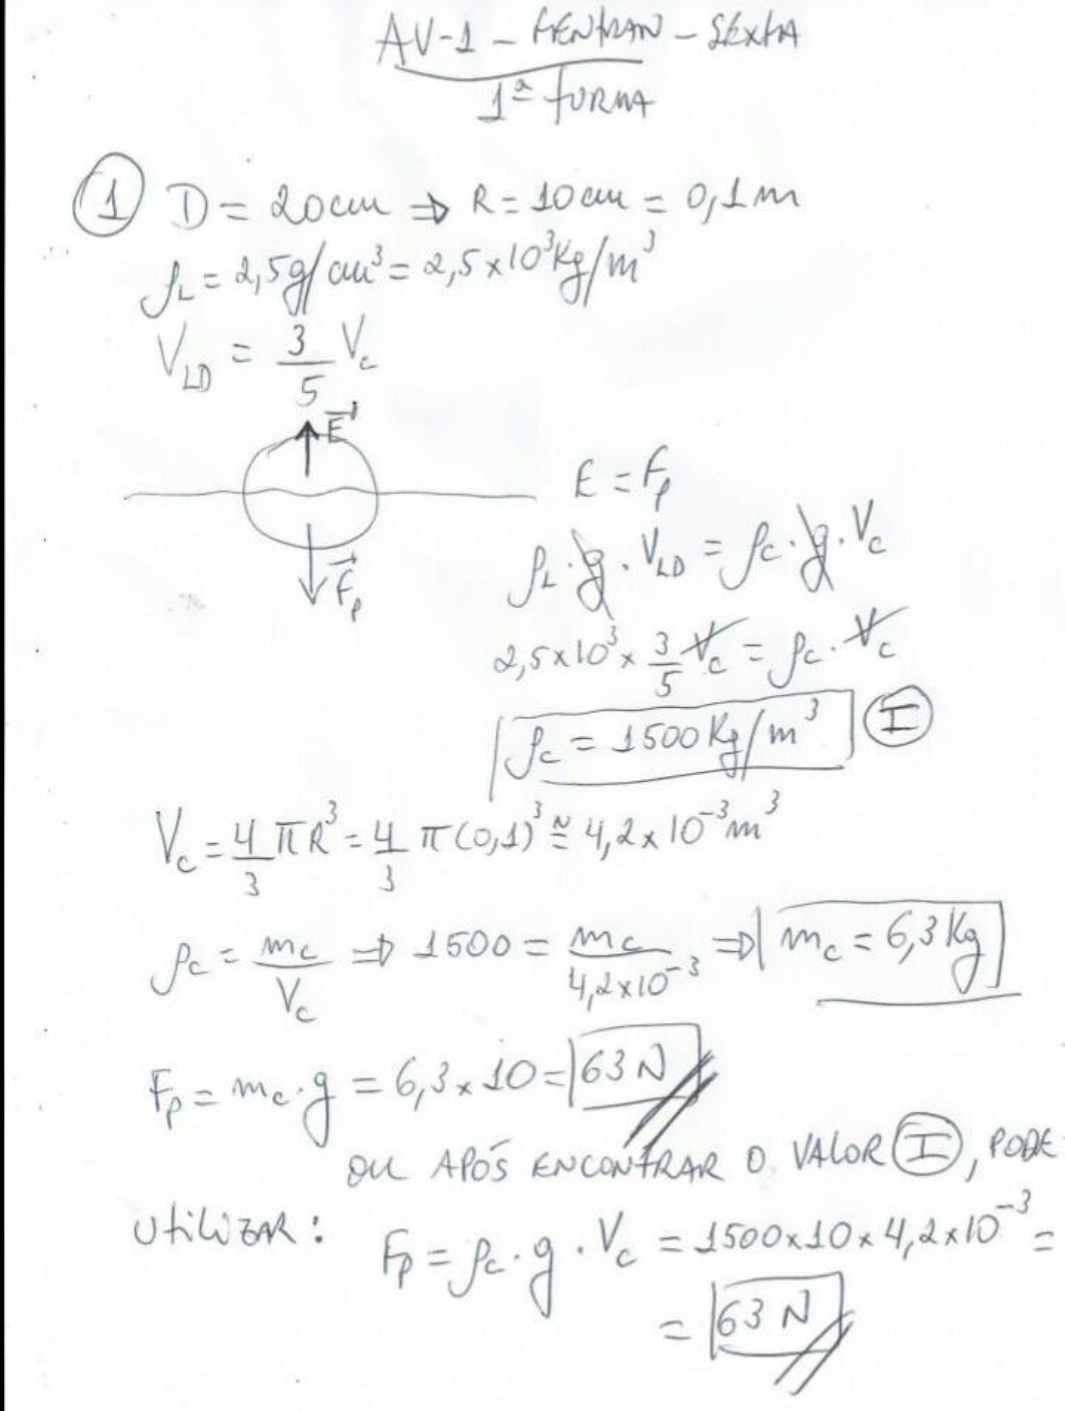 AV-1 - FENTRAN - SEXTA
1ª FORMA
① D = 20cm ⇒ R = 10cm = 0,1m
ρL = 2,5g/cm³ = 2,5×10³Kg/m³
VLD = 3/5 Vc
E
Fp
E = Fp
ρL · g · VLD = ρc · g · Vc
2,5×10³ × 3/5 Vc = ρc · Vc
ρc = 1500 Kg/m³ Ⓘ
Vc = 4/3 πR³ = 4/3 π(0,1)³ ≅ 4,2×10⁻³m³
ρc = mc/Vc ⇒ 1500 = mc/4,2×10⁻³ ⇒ mc = 6,3Kg
Fp = mc·g = 6,3×10 = 63N
OU APÓS ENCONTRAR O VALOR Ⓘ, PODE
UTILIZAR: Fp = ρc·g·Vc = 1500×10×4,2×10⁻³ =
= 63 N